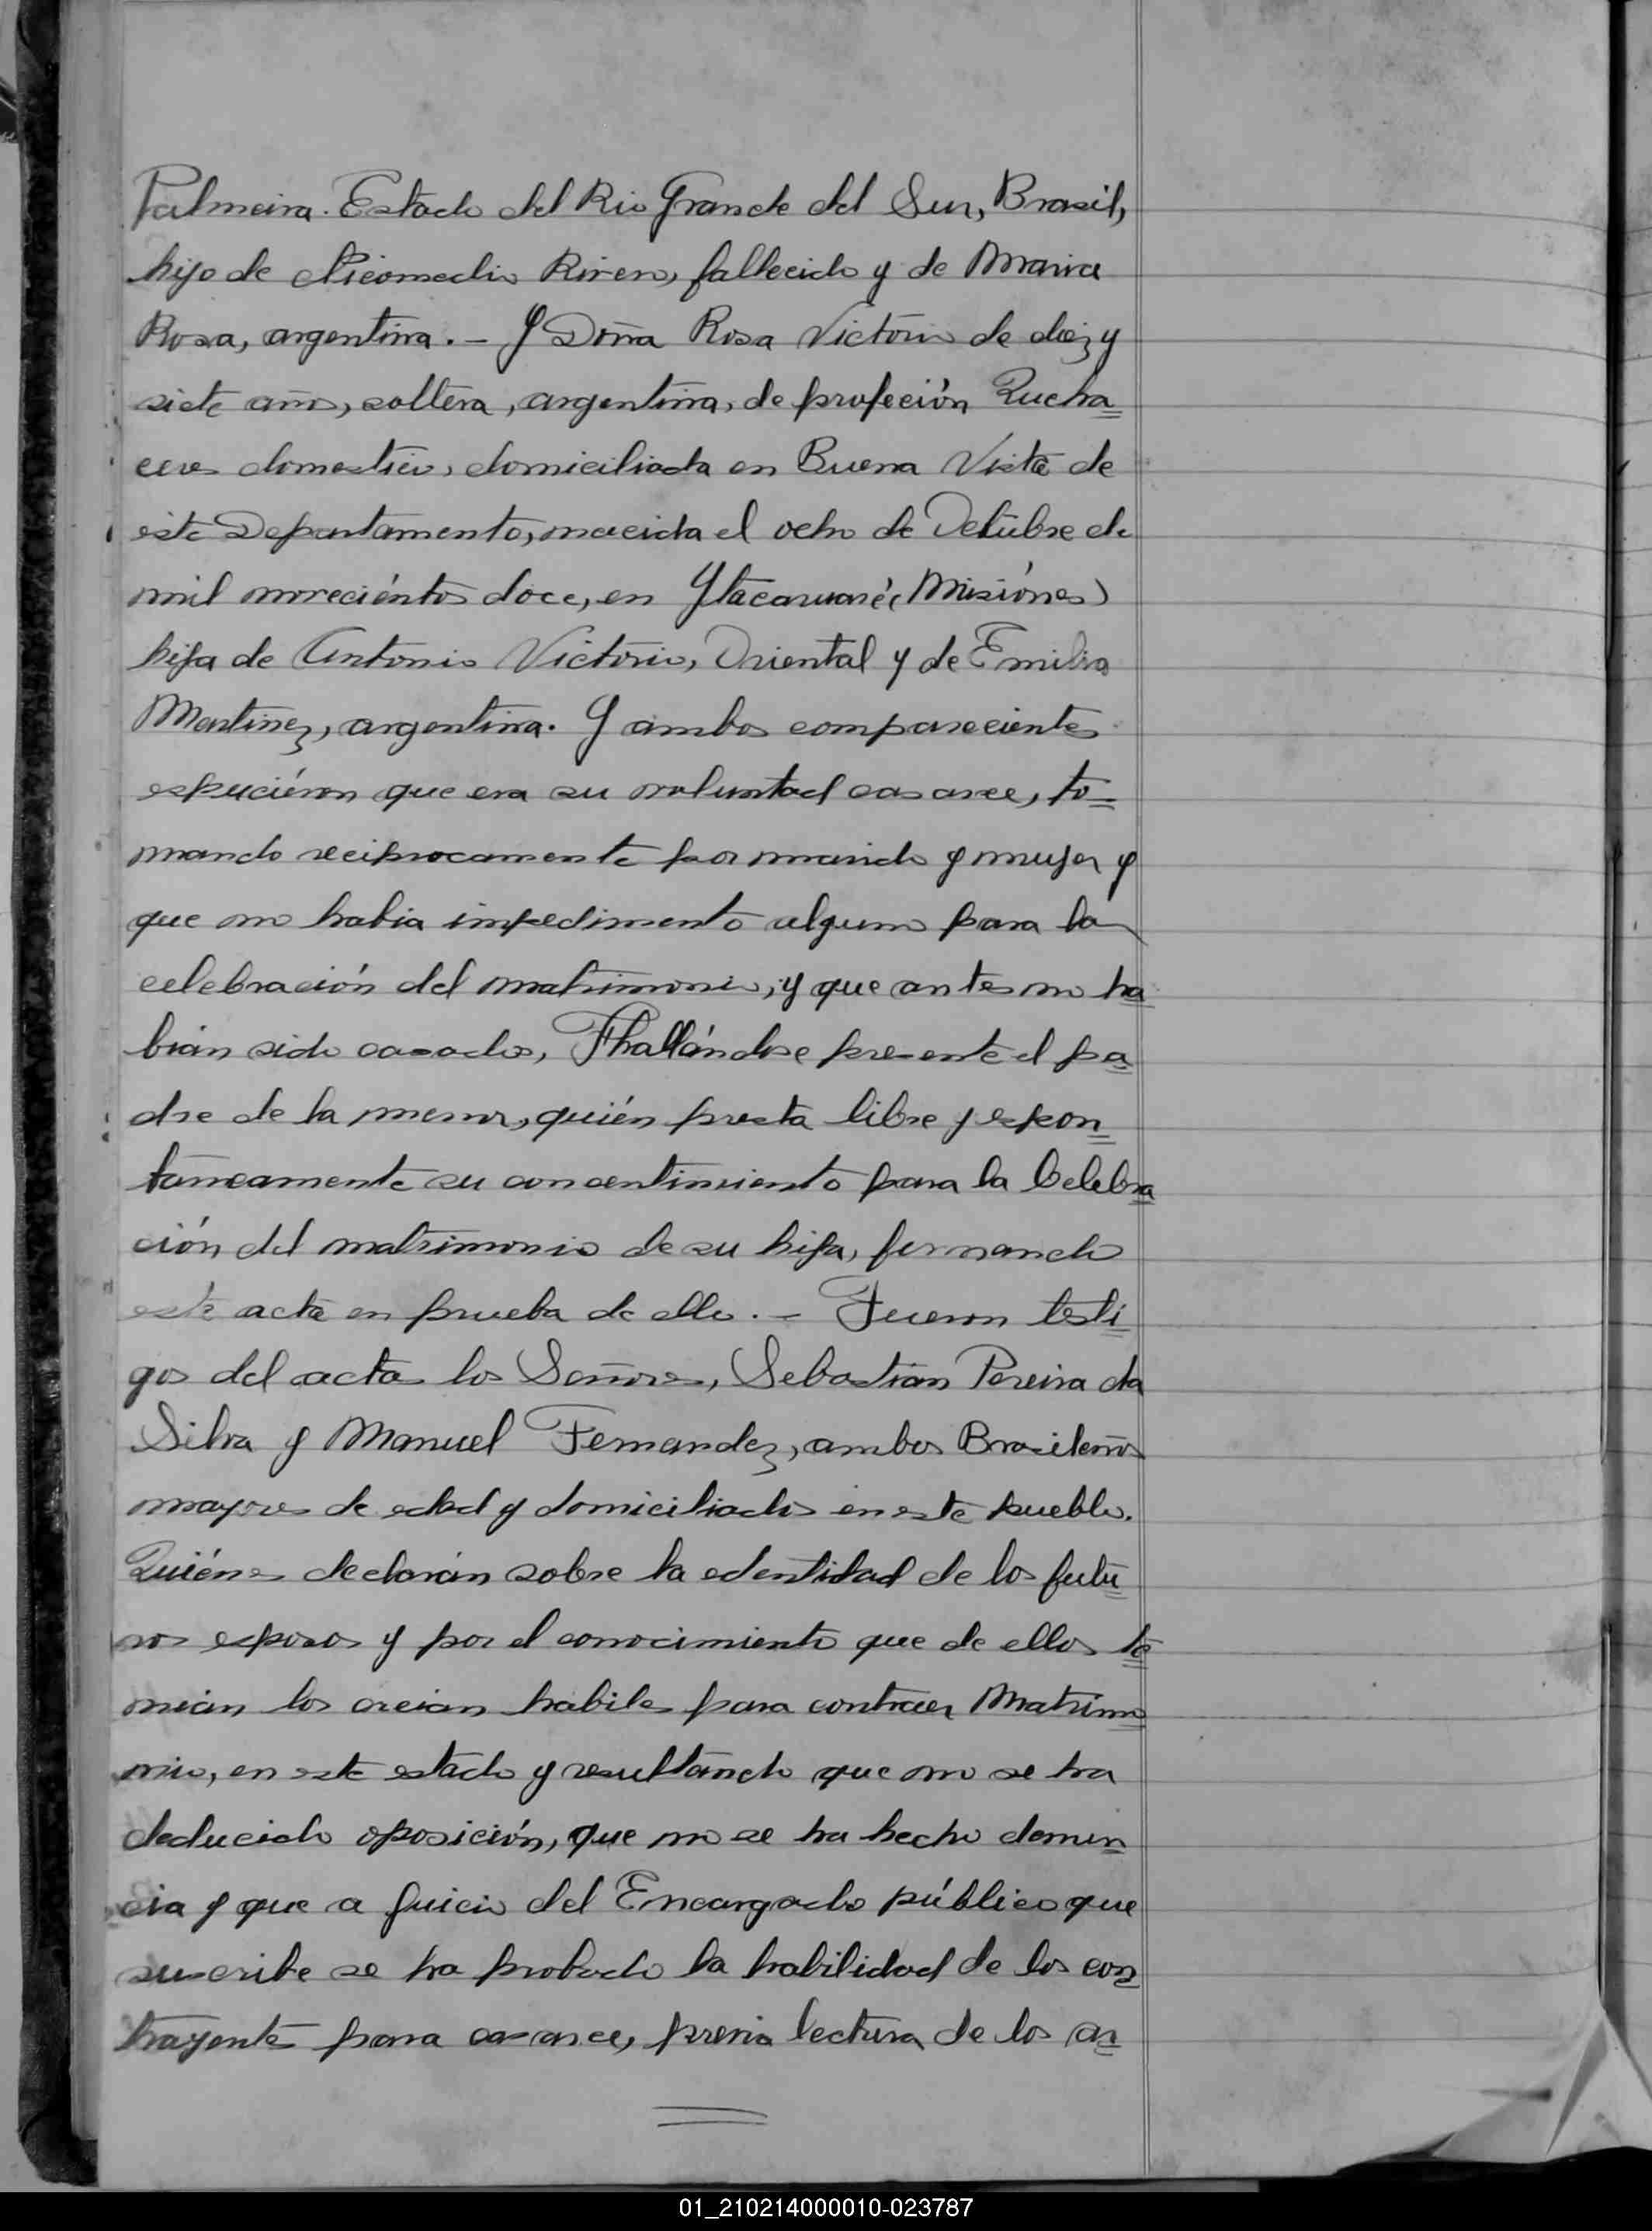 Palmeira. Estado del Rio Grande del Sur, Brasil,
hijo de Nicomedio Rivero, fallecido y de Maria
Rosa, argentina. — Y Doña Rosa Victorio de diez y
siete años, soltera, argentina, de profeción Qucha=
ceres domestico, domiciliada en Buena Vista de
este Departamento, nacida el ocho de Octubre de
mil noreciéntos doce, en Ytacaruaré (Misiónes)
hija de Antonio Victorio, Oriental y de Emilia
Martinez, argentina. Y ambos compareciente
espuciéron que era su voluntad casarce, to=
mando reciprocamente por marido y mujer y
que no habia impedimento alguno para la
celebración del matrimonio, y que antes no ha
bian sido casados, Hallándose presente el pa
dre de la menor, quién presta libre y espon
taneamente su concentimiento para la Celebra
ción del matrimonio de su hija, firmando
este acta en prueba de ello. — Fueron testi
gos del acta los Señores, Sebastian Pereira da
Silva y Manuel Fernandez, ambos Brasileños
mayores de edad y domiciliados en este pueblo.
Quiénes declarán sobre la edentidad de los futu
ros esposos y por el conocimiento que de ellos te
nian los creian habiles para contraer Matrimo
nio, en este estado y resultando que no se ha
deducido oposición, que no se ha hecho denun
cia y que a juicio del Encargado público que
suscribe se ha probado la habilidad de los con
trayente para casarce, previa lectura de los ar
01_210214000010-023787